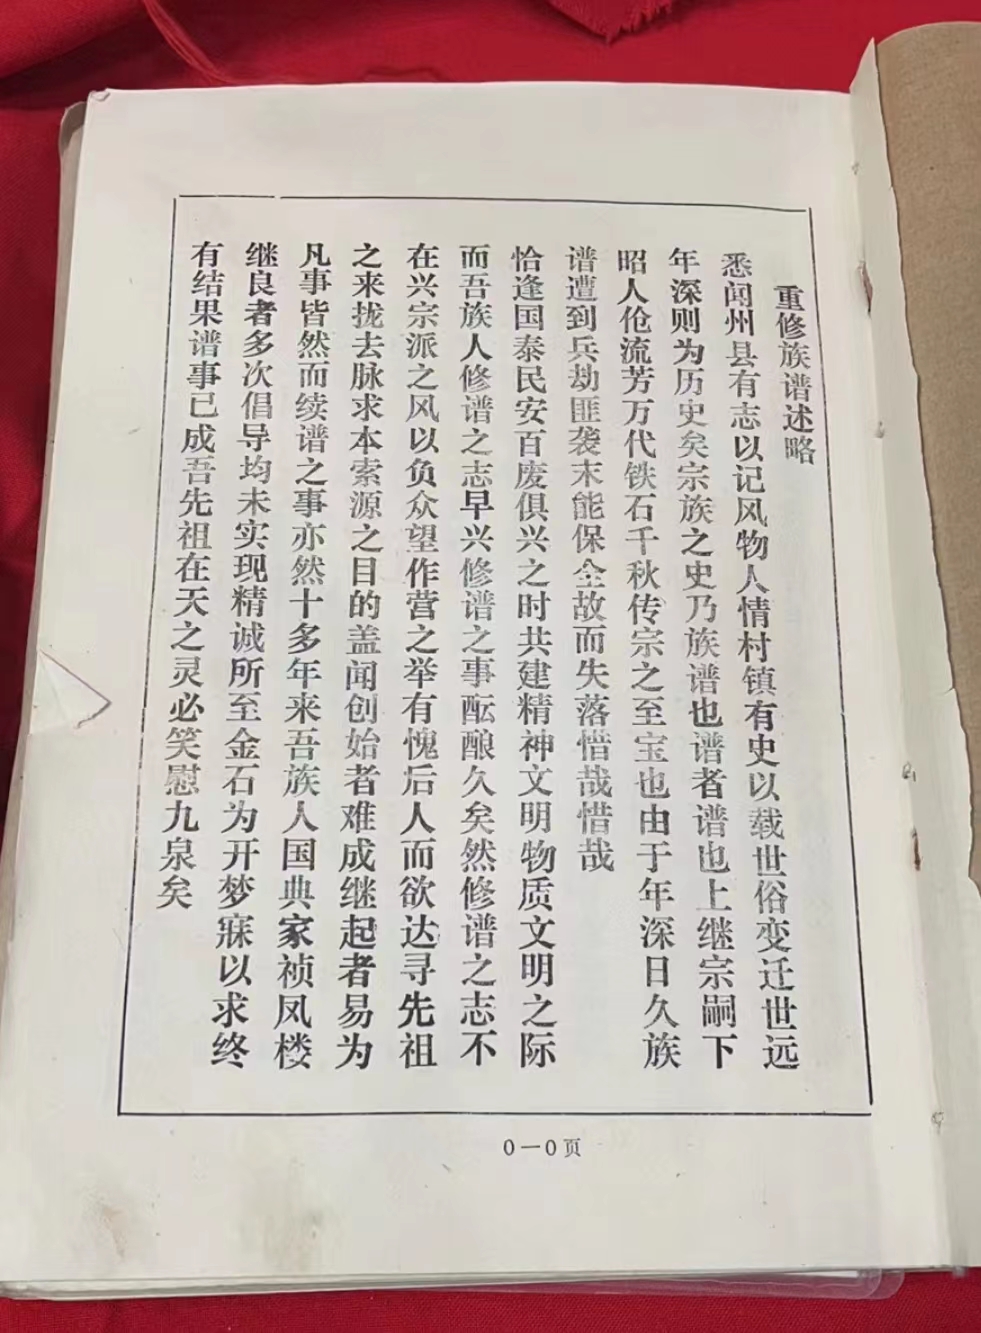 重修族谱述略
悉闻州县有志以记风物人情村镇有史以载世俗变迁世远
年深则为历史矣宗族之史乃族谱也谱者谱也上继宗嗣下
昭人伦流芳万代铁石千秋传宗之至宝也由于年深日久族
谱遭到兵劫匪袭末能保全故而失落惜哉惜哉
恰逢国泰民安百废俱兴之时共建精神文明物质文明之际
而吾族人修谱之志早兴修谱之事酝酿久矣然修谱之志不
在兴宗派之风以负众望作营之举有愧后人而欲达寻先祖
之来拢去脉求本索源之目的盖闻创始者难成继起者易为
凡事皆然而续谱之事亦然十多年来吾族人国典家祯凤楼
继良者多次倡导均未实现精诚所至金石为开梦寐以求终
有结果谱事已成吾先祖在天之灵必笑慰九泉矣
0—0页